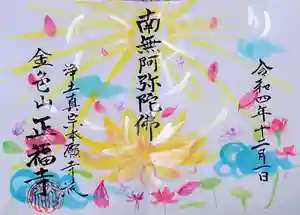 令和四年十二月一日
南無阿弥陀佛
浄土真宗本願寺派
金色山 正福寺